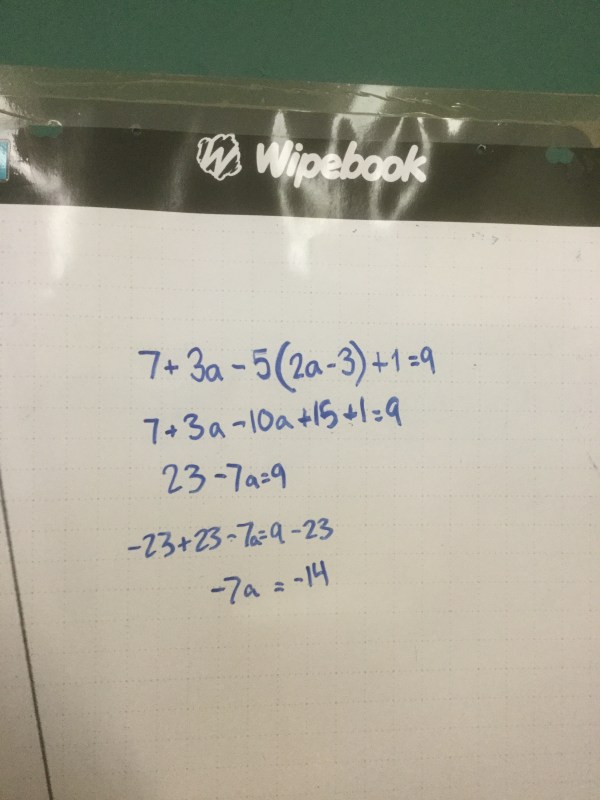 Wipebook
7+3a-5(2a-3)+1=9
7+3a-10a+15+1=9
23-7a=9
-23+23-7a=9-23
-7a=-14